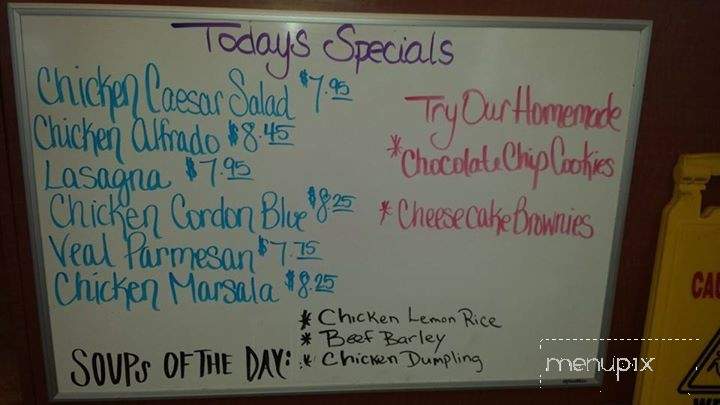 Todays Specials
Chicken Caesar Salad $7.95
Chicken Alfrado $8.45
Lasagna $7.95
Chicken Cordon Blue $8.25
Veal Parmesan $7.75
Chicken Marsala $8.25
Try Our Homemade
* Chocolate Chip Cookies
* Cheesecake Brownies
SOUPS OF THE DAY:
* Chicken Lemon Rice
* Beef Barley
* Chicken Dumpling
menupix